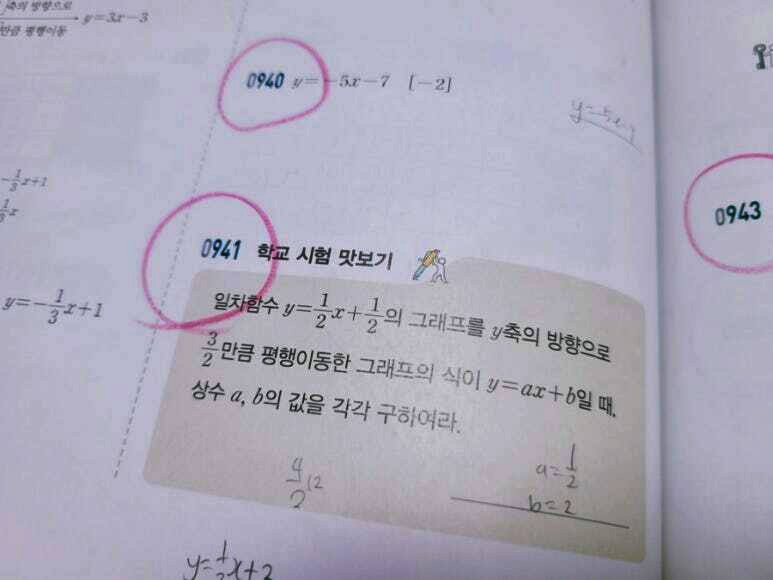 축의 방향으로
만큼 평행이동
y=3x-3
0940 y=-5x-7 [-2]
-1/3x+1
1/3x
y=-1/3x+1
0941 학교 시험 맛보기
일차함수 y=1/2x+1/2의 그래프를 y축의 방향으로
3/2만큼 평행이동한 그래프의 식이 y=ax+b일 때,
상수 a, b의 값을 각각 구하여라.
4/2
a=1/2
b=2
y=1/2x+2
0943